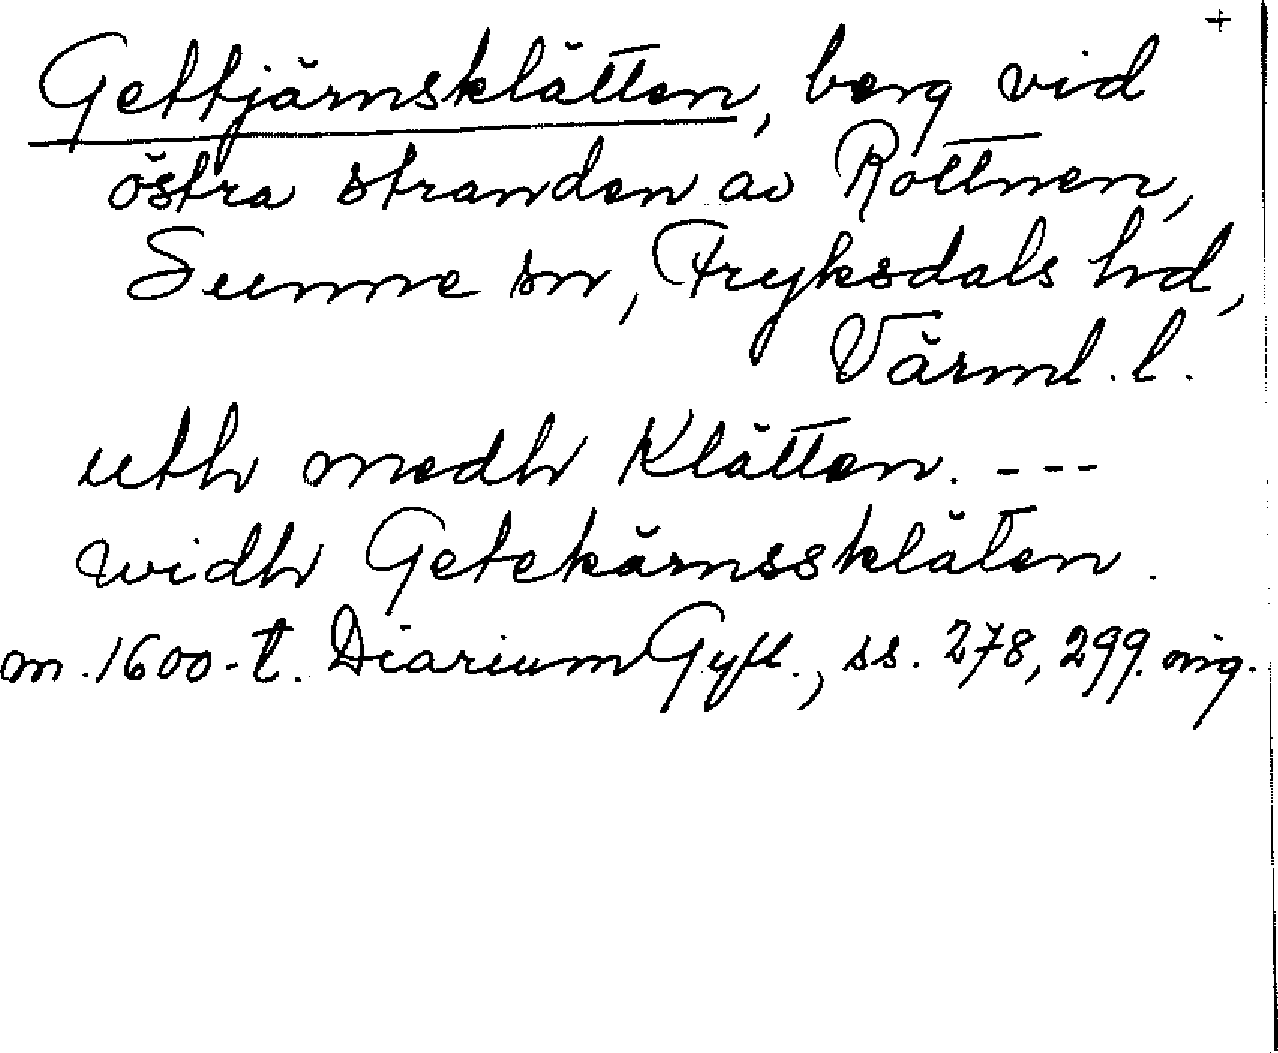 +
Gettjärnsklätten, berg vid
östra stranden av Rottnen,
Sunne sn, Fryksdals hd,
Värml. l.
uth medh Klätten. ---
widh Getekärnsskläten.
m. 1600-t. Diarium Gyll., ss. 278, 299. mg.